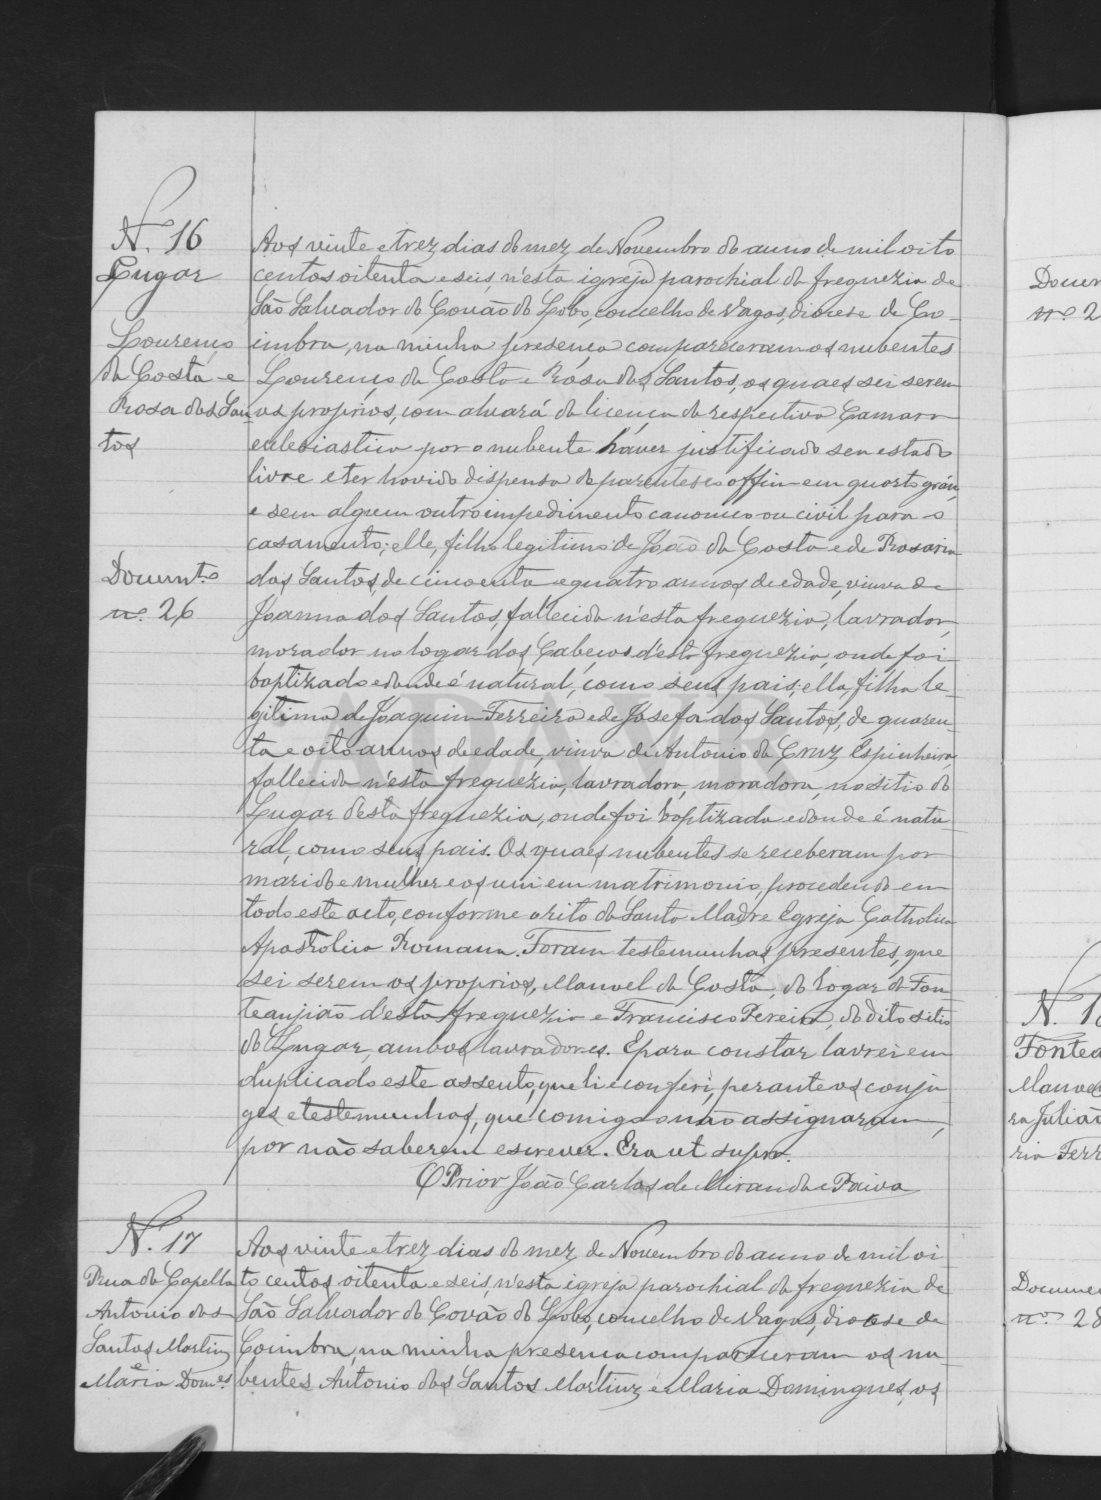 N. 16
Lugar
Lourenço
da Costa e
Rosa dos San-
tos
Documt.o
n.o 26
Aos vinte e trez dias do mez de Novembro do anno de mil oito
centos oitenta e seis, n'esta igreja parochial da freguezia de
São Salvador do Covão do Lobo, concelho de Vagos, diocese de Co-
imbra, na minha presença compareceram os nubentes
Lourenço da Costa e Rosa dos Santos, os quaes sei serem
os proprios, com alvará de licença da respectiva Camara
ecclesiastica por o nubente haver justificado seu estado
livre e ter havido dispensa do parentesco affim em quarto gráu,
e sem algum outro impedimento canonico ou civil para o
casamento; elle, filho legitimo de João da Costa e de Rosaria
dos Santos, de cincoenta e quatro annos de edade, viuvo de
Joanna dos Santos, fallecida n'esta freguezia, lavrador,
morador no logar dos Cabeços d'esta freguezia, onde foi
baptizado e donde é natural, como seus pais; ella, filha le-
gitima de Joaquim Ferreira e de Josefa dos Santos, de quaren-
ta e oito annos de edade, viuva de Antonio da Cruz Espinheiro
fallecido n'esta freguezia, lavradora, moradora, no sitio do
Lugar d'esta freguezia, onde foi baptizada e donde é natu-
ral, como seus pais. Os quaes nubentes se receberam por
marido e mulher e os uni em matrimonio, procedendo em
todo este acto, conforme o rito da Santa Madre Egreja Catholica
Apostolica Romana. Foram testemunhas presentes, que
sei serem os proprios, Manoel da Costa, do logar de Fon
teanjião d'esta freguezia e Francisco Pereira, do dito sitio
do Lugar, ambos lavradores. E para constar lavrei em
duplicado este assento, que li e conferi, perante os conju
ges e testemunhas, que comigo o não assignaram,
por não saberem escrever. Era ut supra.
O Prior João Carlos de Miranda e Paiva
N. 17
Rua da Capella
Antonio dos
Santos Martinz
e
Maria Dom.es
Aos vinte e trez dias do mez de Novembro do anno de mil oi
to centos oitenta e seis, n'esta igreja parochial da freguezia de
São Salvador do Covão do Lobo, concelho de Vagos, diocese de
Coimbra, na minha presença compareceram os nu-
bentes Antonio dos Santos Martinz e Maria Domingues, os
Docum
n.o 2
N. 1
Fontea
Manoel
ra Julião
ria Ferr
Docume
n.o 28
ADAVR